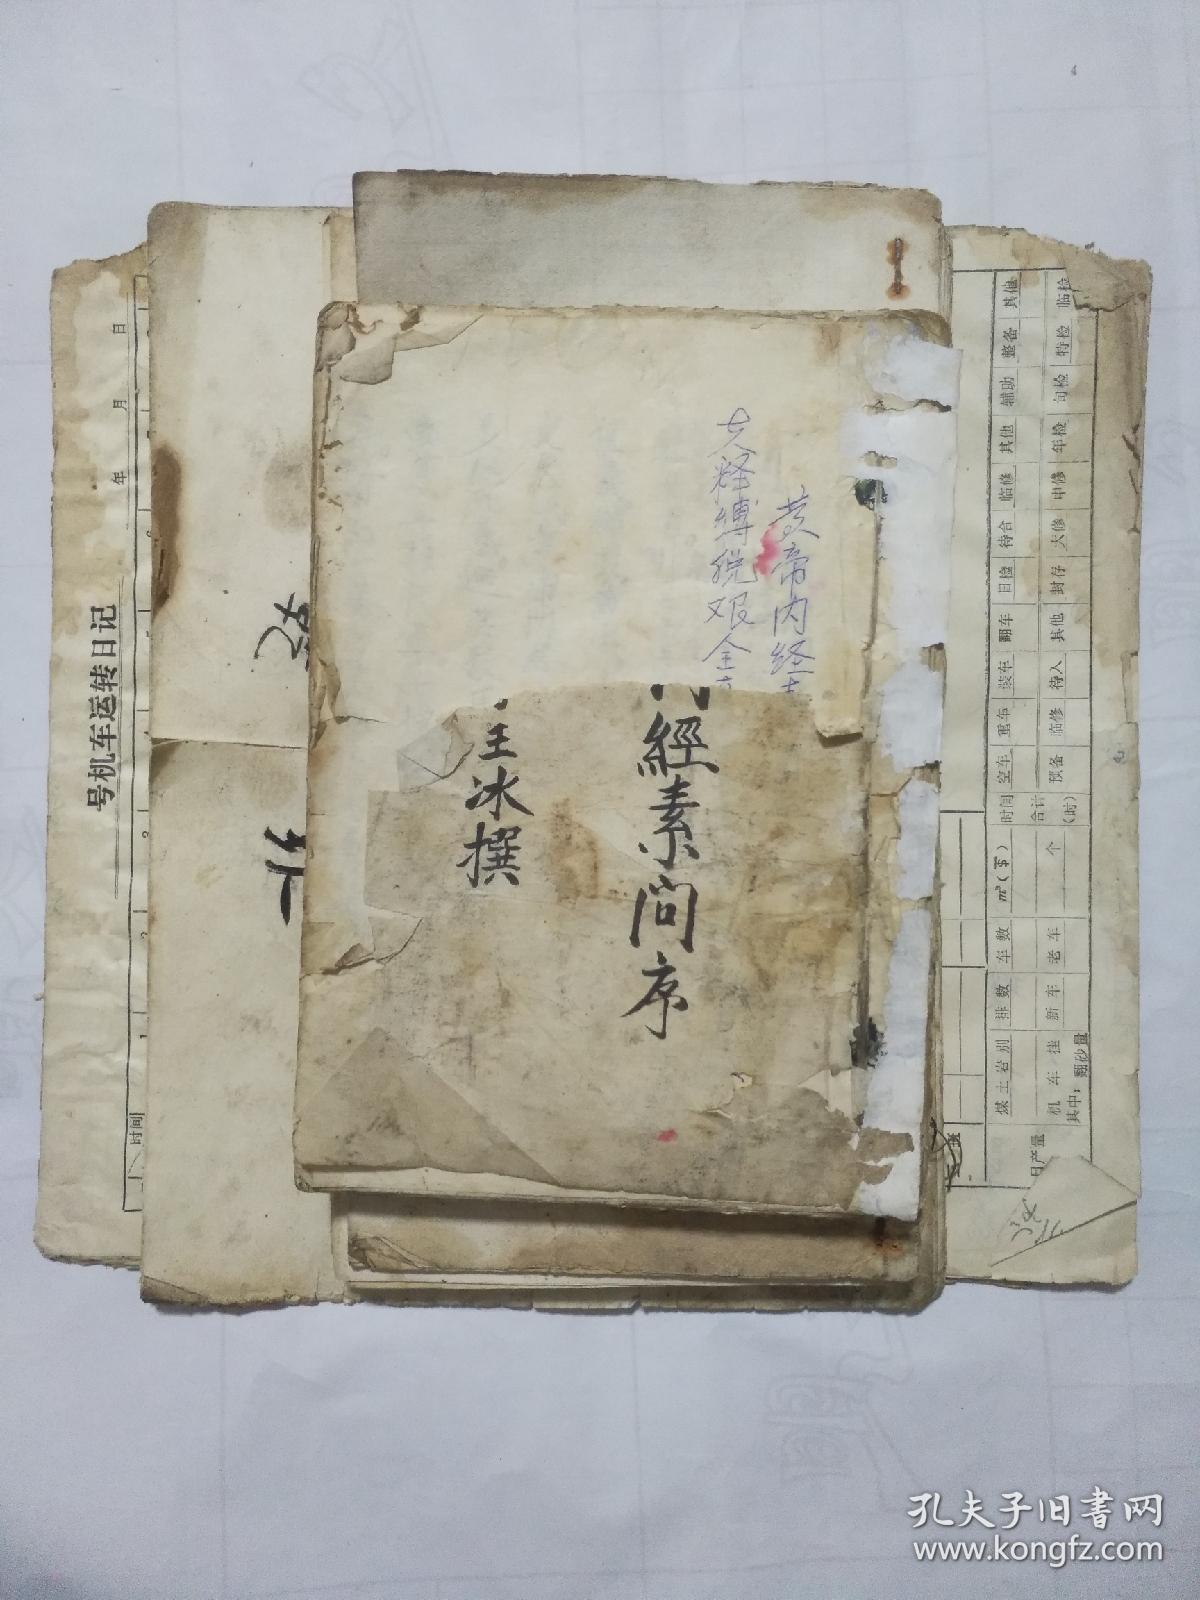 黄帝内经
夫释缚脱艰全
經素问序
王冰撰
号机车运转日记
年 月 日
时间
1 2 3
其他 整备 辅助 其他 临修 待合 日检 翻车 装车 重车 空车 时间
临检 特检 旬检 年检 中修 大修 封存 其他 待入 临修 预备 合计(时)
煤土岩别 排数 车数 m³(市)
机车挂 新车 老车 个
其中: 翻砂量
日产量
孔夫子旧书网
www.kongfz.com